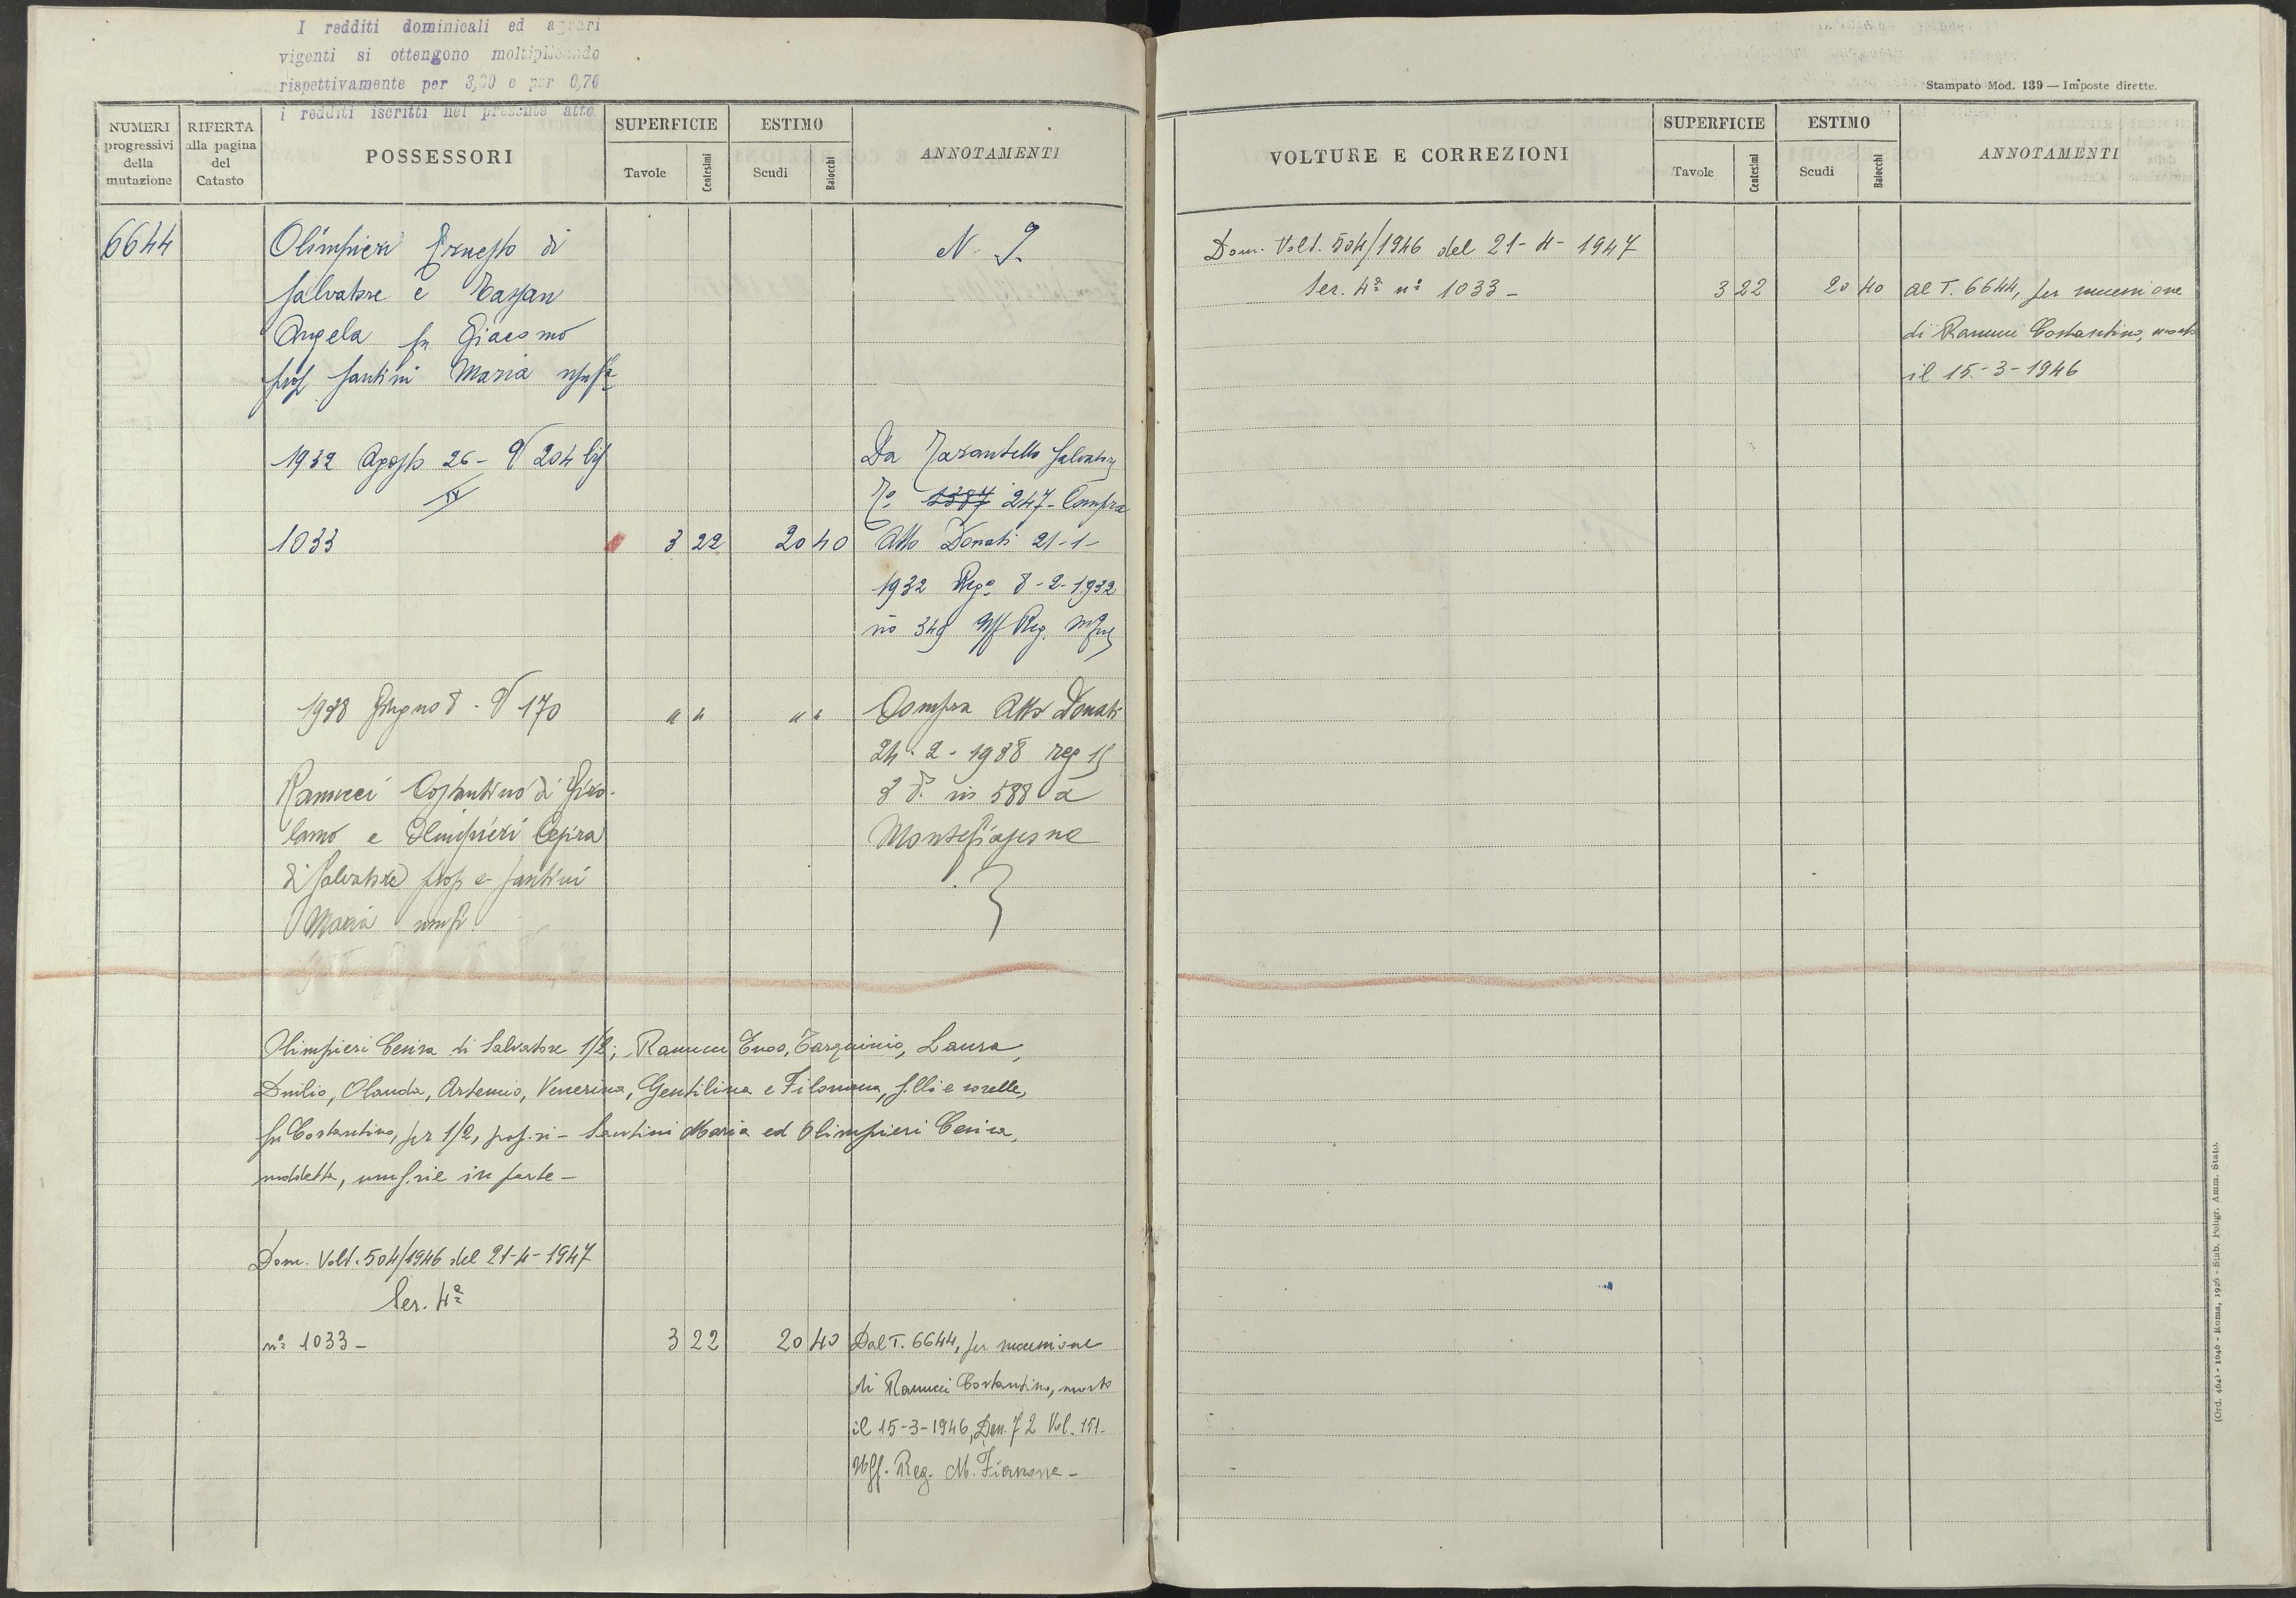 I redditi dominicali ed agrari
vigenti si ottengono moltiplicando
rispettivamente per 3,20 e per 0,76
i redditi iscritti nel presente atto.
NUMERI progressivi della mutazione
RIFERTA alla pagina del Catasto
POSSESSORI
SUPERFICIE
Tavole
Centesimi
ESTIMO
Scudi
Baiocchi
ANNOTAMENTI
6644
Olimpieri Ernesto di
Salvatore e
Angela fu Giacomo
prop Santini Maria usufª
N. 9
1932 Agosto 26 - 204 bis
IV
1033 3 22 20 40
Da Tarantello Salvatore
247 - Compra
Atto Donati 21-1-
1932 Rego 8-2-1932
no 349 Uff Reg.
1938 Giugno 8 - 170 " " " "
Ranucci Costantino di Giro-
lamo e Olimpieri Cesira
di Salvatore prop e Santini
Maria usuf.
Compra Atto Donati
24-2-1938 reg 15
no 588 a
Montefiascone
Olimpieri Cesira di Salvatore 1/2; Ranucci Enos, Tarquinio, Laura,
Duilio, Olanda, Artemio, Venerina, Gentilina e Filomena, f.lli e sorelle,
fu Costantino, per 1/2, prop.ri - Santini Maria ed Olimpieri Cesira,
suddetta, usuf.rie in parte -
Dom. Volt. 504/1946 del 21-4-1947
Ser. 4ª
nº 1033 - 3 22 20 40
Dal T. 6644, per successione
di Ranucci Costantino, morto
il 15-3-1946, Den. 72 Vol. 151.
Uff. Reg. M. Fiascone -
Stampato Mod. 139 — Imposte dirette.
VOLTURE E CORREZIONI
SUPERFICIE
Tavole
Centesimi
ESTIMO
Scudi
Baiocchi
ANNOTAMENTI
Dom. Volt. 504/1946 del 21-4-1947
Ser. 4ª nº 1033 - 3 22 20 40
al T. 6644, per successione
di Ranucci Costantino, morto
il 15-3-1946
(Ord. 464) - 1046 - Roma, 1926 - Stab. Poligr. Amm. Stato.